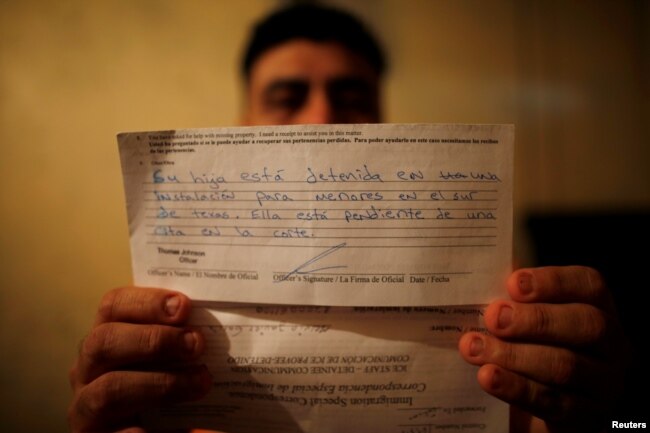 8. You have asked for help with missing property. I need a receipt to assist you in this matter.
Usted ha preguntado si se le puede ayudar a recuperar sus pertenencias perdidas. Para poder ayudarlo en este caso necesitamos los recibos
de las pertenencias.
9. Other/Otra
Su hija está detenida en una
instalación para menores en el sur
de texas. Ella está pendiente de una
cita en la corte.
Thomas Johnson
Officer
Officer's Name / El Nombre de Oficial Officer's Signature / La Firma de Oficial Date / Fecha
COMUNICACIÓN DE ICE PROVEE-DETENIDO
ICE STAFF – DETAINEE COMMUNICATION
Correspondencia Especial de Inmigración
Immigration Special Correspondence
Reuters